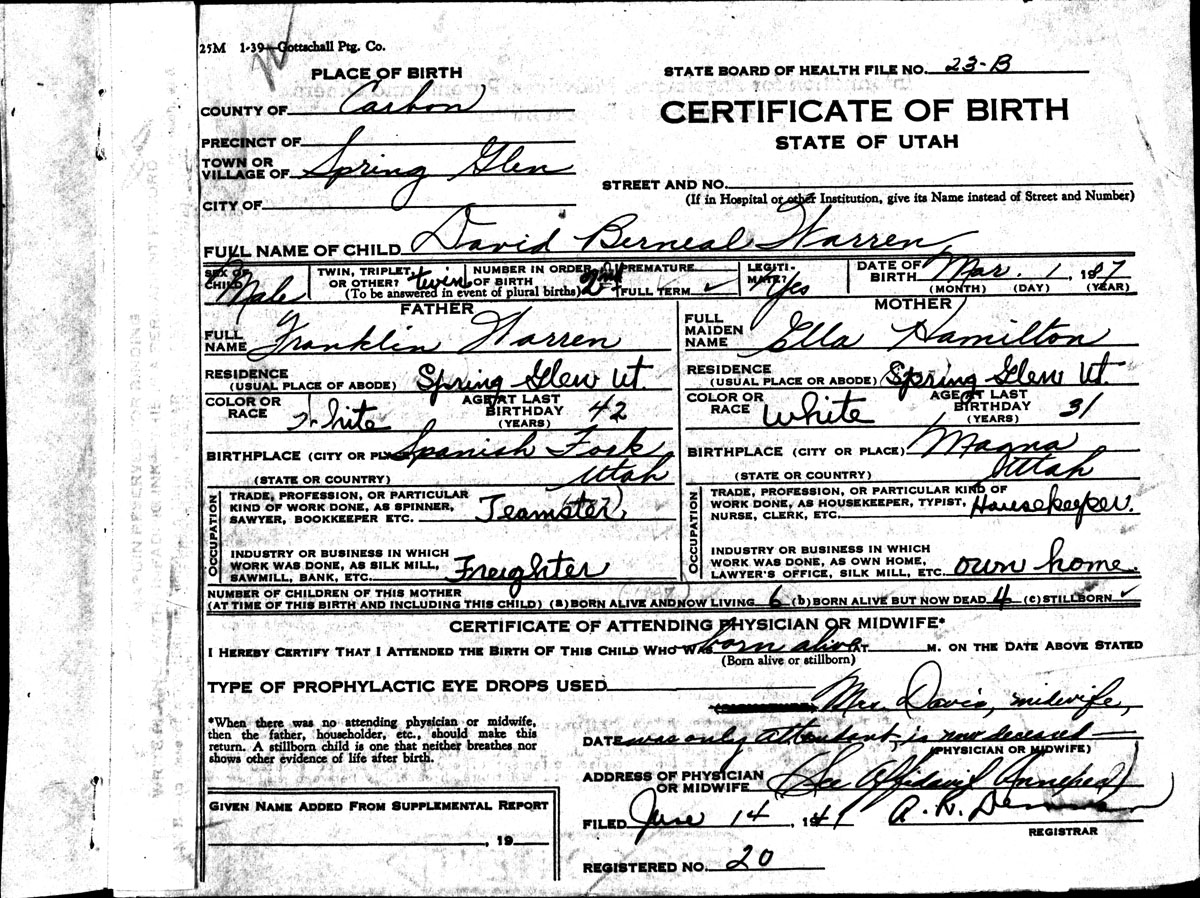 25M 1-39—Gottschall Ptg. Co.
PLACE OF BIRTH
STATE BOARD OF HEALTH FILE NO. 23-B
COUNTY OF Carbon
CERTIFICATE OF BIRTH
PRECINCT OF
STATE OF UTAH
TOWN OR VILLAGE OF Spring Glen
STREET AND NO.
(If in Hospital or other Institution, give its Name instead of Street and Number)
CITY OF
FULL NAME OF CHILD David Berneal Warren
SEX OF CHILD Male
TWIN, TRIPLET, OR OTHER? twin
NUMBER IN ORDER OF BIRTH 2nd
(To be answered in event of plural births)
PREMATURE
FULL TERM ✓
LEGITIMATE? Yes
DATE OF BIRTH Mar. 1, 1907
(MONTH) (DAY) (YEAR)
FATHER
FULL NAME Franklin Warren
RESIDENCE (USUAL PLACE OF ABODE) Spring Glen Ut.
COLOR OR RACE White
AGE AT LAST BIRTHDAY 42 (YEARS)
BIRTHPLACE (CITY OR PLACE) Spanish Fork
(STATE OR COUNTRY) Utah
OCCUPATION
TRADE, PROFESSION, OR PARTICULAR
KIND OF WORK DONE, AS SPINNER,
SAWYER, BOOKKEEPER ETC. Teamster
INDUSTRY OR BUSINESS IN WHICH
WORK WAS DONE, AS SILK MILL,
SAWMILL, BANK, ETC. Freighter
MOTHER
FULL MAIDEN NAME Ella Hamilton
RESIDENCE (USUAL PLACE OF ABODE) Spring Glen Ut.
COLOR OR RACE White
AGE AT LAST BIRTHDAY 31 (YEARS)
BIRTHPLACE (CITY OR PLACE) Magna
(STATE OR COUNTRY) Utah
OCCUPATION
TRADE, PROFESSION, OR PARTICULAR KIND OF
WORK DONE, AS HOUSEKEEPER, TYPIST,
NURSE, CLERK, ETC. Housekeeper.
INDUSTRY OR BUSINESS IN WHICH
WORK WAS DONE, AS OWN HOME,
LAWYER'S OFFICE, SILK MILL, ETC. own home.
NUMBER OF CHILDREN OF THIS MOTHER
(AT TIME OF THIS BIRTH AND INCLUDING THIS CHILD) (a) BORN ALIVE AND NOW LIVING 6 (b) BORN ALIVE BUT NOW DEAD 4 (c) STILLBORN ✓
CERTIFICATE OF ATTENDING PHYSICIAN OR MIDWIFE*
I HEREBY CERTIFY THAT I ATTENDED THE BIRTH OF THIS CHILD WHO WAS born alive AT M. ON THE DATE ABOVE STATED
(Born alive or stillborn)
TYPE OF PROPHYLACTIC EYE DROPS USED
Mrs. Davis, midwife,
*When there was no attending physician or midwife,
then the father, householder, etc., should make this
return. A stillborn child is one that neither breathes nor
shows other evidence of life after birth.
DATE was only attendant is now deceased
(PHYSICIAN OR MIDWIFE)
ADDRESS OF PHYSICIAN OR MIDWIFE (See Affidavit Annexed)
GIVEN NAME ADDED FROM SUPPLEMENTAL REPORT
, 19
FILED June 14, 1941
REGISTRAR
REGISTERED NO. 20